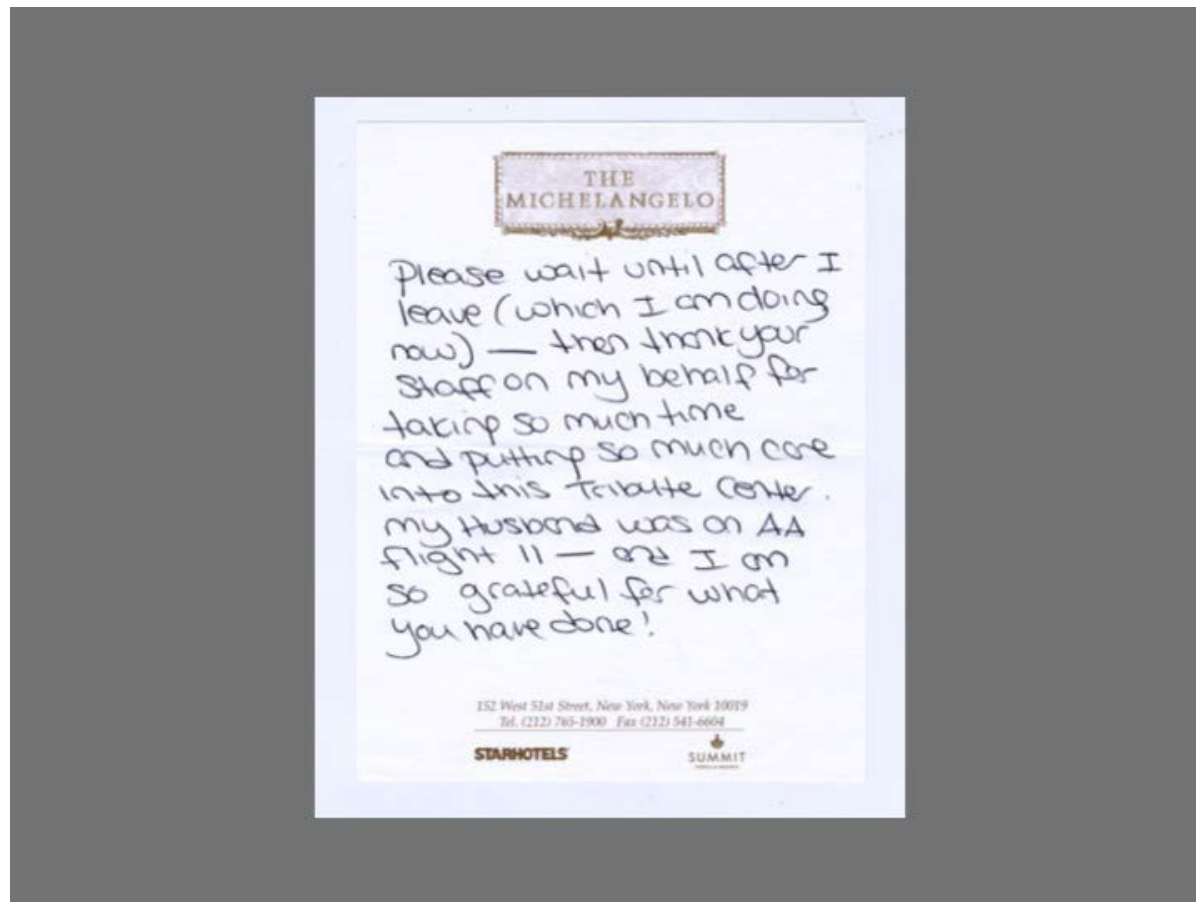 THE
MICHELANGELO
Please wait until after I
leave (which I am doing
now) — then thank your
staff on my behalf for
taking so much time
and putting so much care
into this Tribute Center.
my Husband was on AA
flight 11 — and I am
so grateful for what
you have done!
152 West 51st Street, New York, New York 10019
Tel. (212) 765-1900 Fax (212) 541-6604
STARHOTELS
SUMMIT